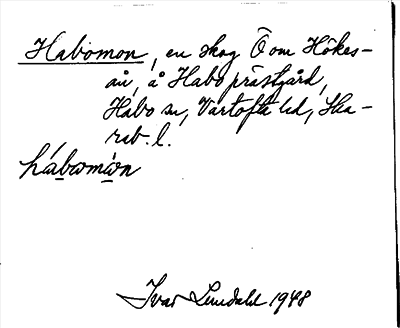 Habomon, en skog Ö om Hökes-
ån, å Habo prästgård,
Habo sn, Vartofta hd, Ska-
rab. l.
hábomòn
Ivar Lundahl 1948